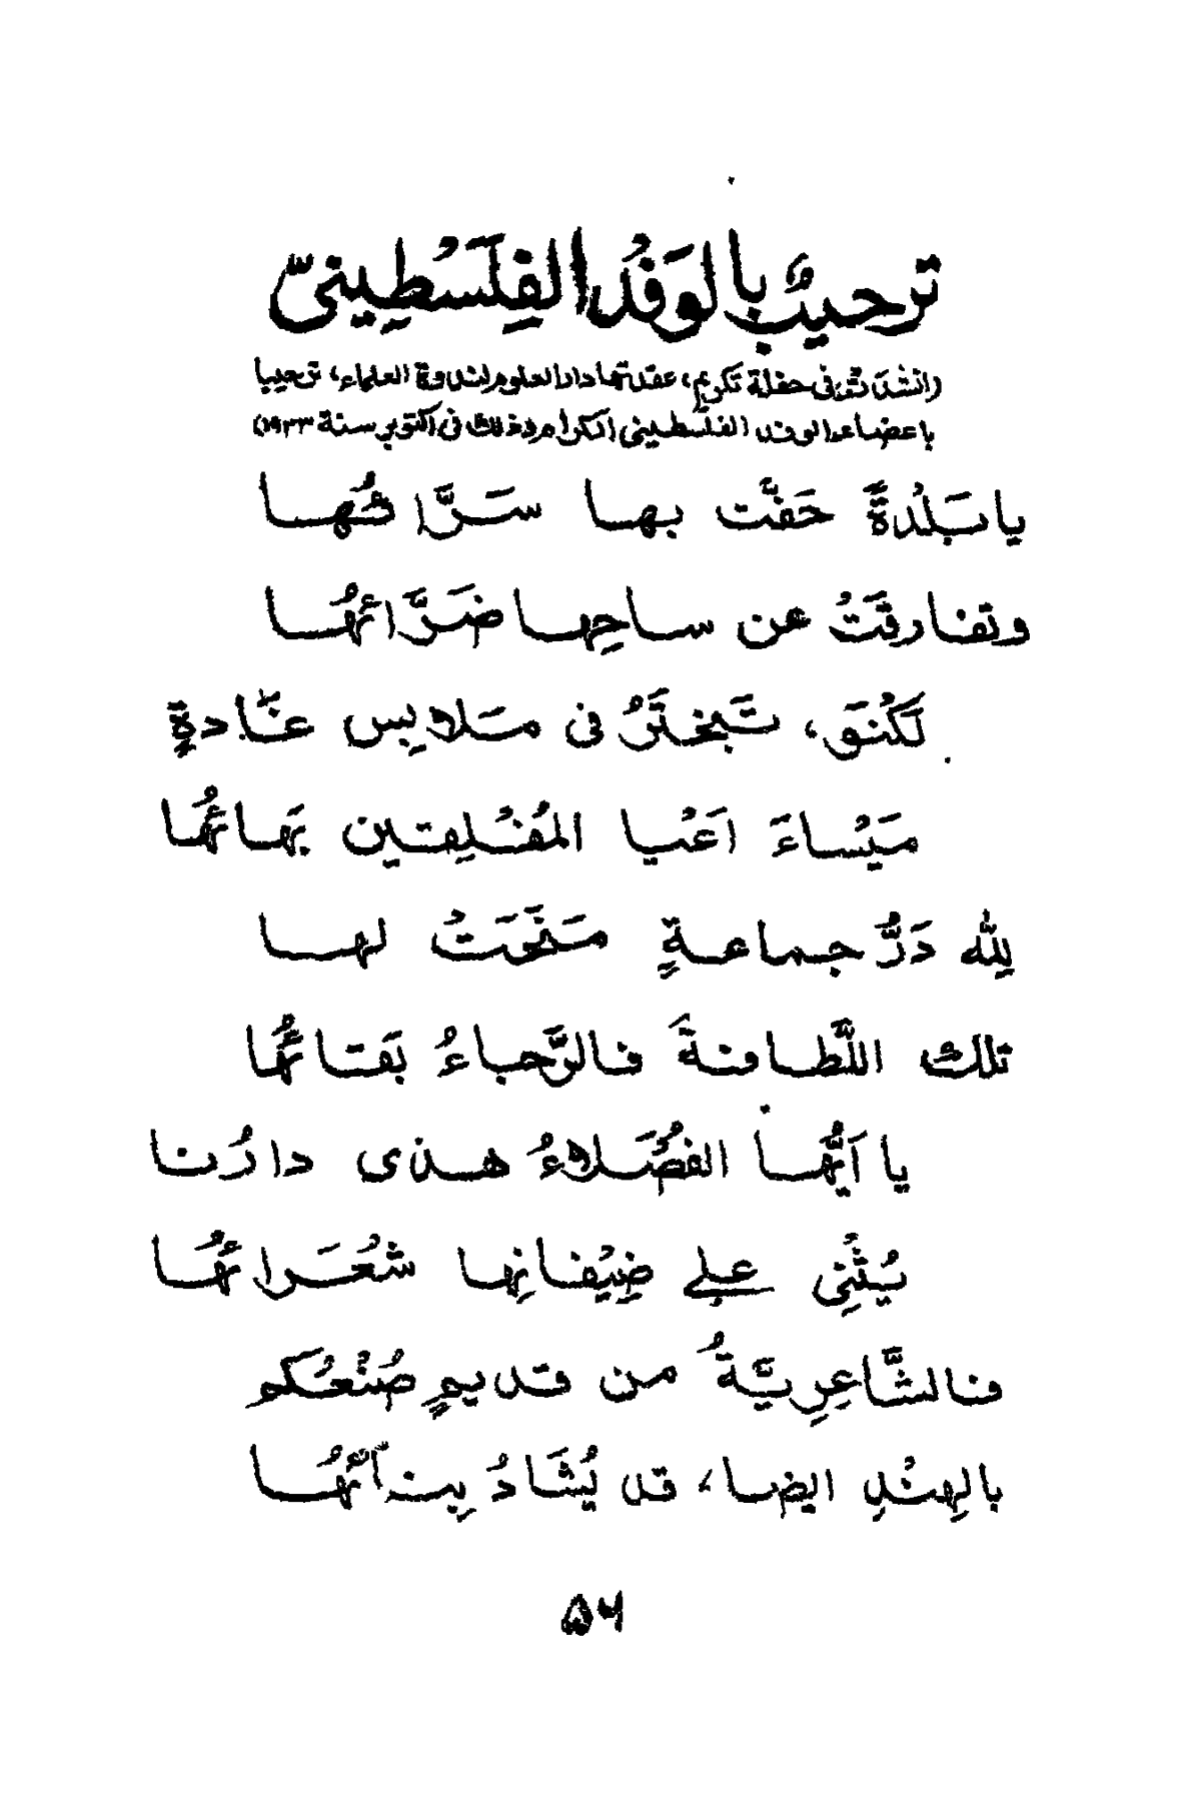 ترحيبٌ بالوَفْد الفِلَسْطِينيّ
(أنشدَتُه في حفلة تكريم، عقدتها دار العلوم لندوة العلماء، ترحيبا
بأعضاء الوفد الفلسطيني الكرام وذلك في أكتوبر سنة ١٩٣٣)
يا بَلْدةً حَفَّت بها سَرَّائُها
وتفارقَتْ عن ساحِها ضَرَّائهُا
لَكْنَؤ، تَبَخْتَرُ في مَلابِس غَادةٍ
مَيْساءَ اَعْيا المُفْلِقين بَهائُها
لِلّٰه دَرُّ جماعةٍ مَنَحَتْ لها
تلك اللَّطافةَ فالرَّحباءُ بَقائُها
يا اَيُّها الفُضَلاءُ هذي دارُنا
يُثْنِي على ضِيْفانِها شُعَرائُها
فالشَّاعِرِيَّةُ من قديمٍ صُنْعُكم
بالهِنْدِ ايضا، قد يُشَادُ بِنآئهُا
۵۶